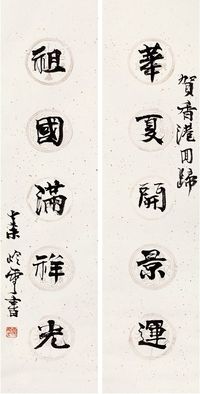 賀香港回歸
華夏開景運
祖國滿祥光
秦岭雲書